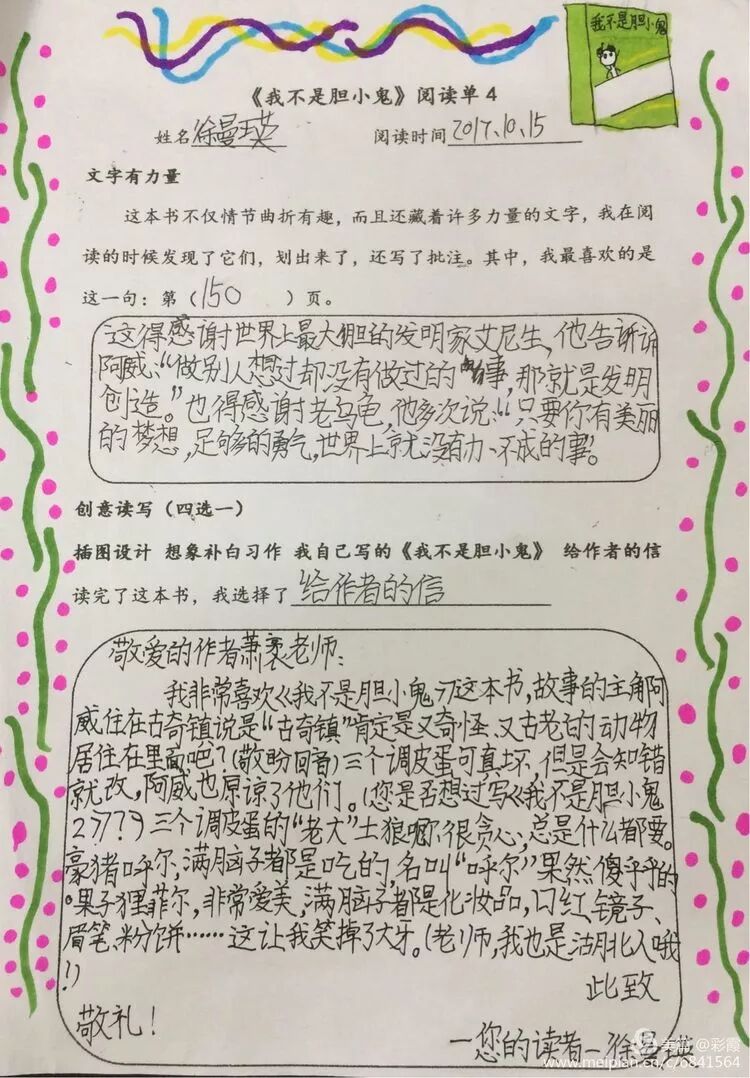 我不是胆小鬼
《我不是胆小鬼》阅读单4
姓名徐曼瑛 阅读时间2017.10.15
文字有力量
这本书不仅情节曲折有趣，而且还藏着许多力量的文字，我在阅
读的时候发现了它们，划出来了，还写了批注。其中，我最喜欢的是
这一句：第（150）页。
这得感谢世界上最大胆的发明家艾尼生，他告诉
阿威：“做别人想过却没有做过的事，那就是发明
创造。”也得感谢老乌龟，他多次说：“只要你有美丽
的梦想，足够的勇气，世界上就没有办不成的事”。
创意读写（四选一）
插图设计 想象补白习作 我自己写的《我不是胆小鬼》 给作者的信
读完了这本书，我选择了给作者的信
敬爱的作者萧袤老师：
我非常喜欢《我不是胆小鬼》这本书，故事的主角阿
威住在古奇镇说是“古奇镇”肯定是又奇怪、又古老的动物
居住在里面吧？（敬盼回音）三个调皮蛋可真坏，但是会知错
就改，阿威也原谅了他们。（您是否想过写《我不是胆小鬼
2》？？）三个调皮蛋的“老大”土狼嘟很贪心，总是什么都要。
豪猪呼尔，满脑子都是吃的，名叫“呼尔”果然傻乎乎的
。果子狸菲尔，非常爱美，满脑子都是化妆品，口红、镜子、
眉笔、粉饼……这让我笑掉了大牙。（老师，我也是湖北人哦
！）
此致
敬礼！
—您的读者—徐曼瑛
美篇@彩霞
www.meipian.cn/c/6841564